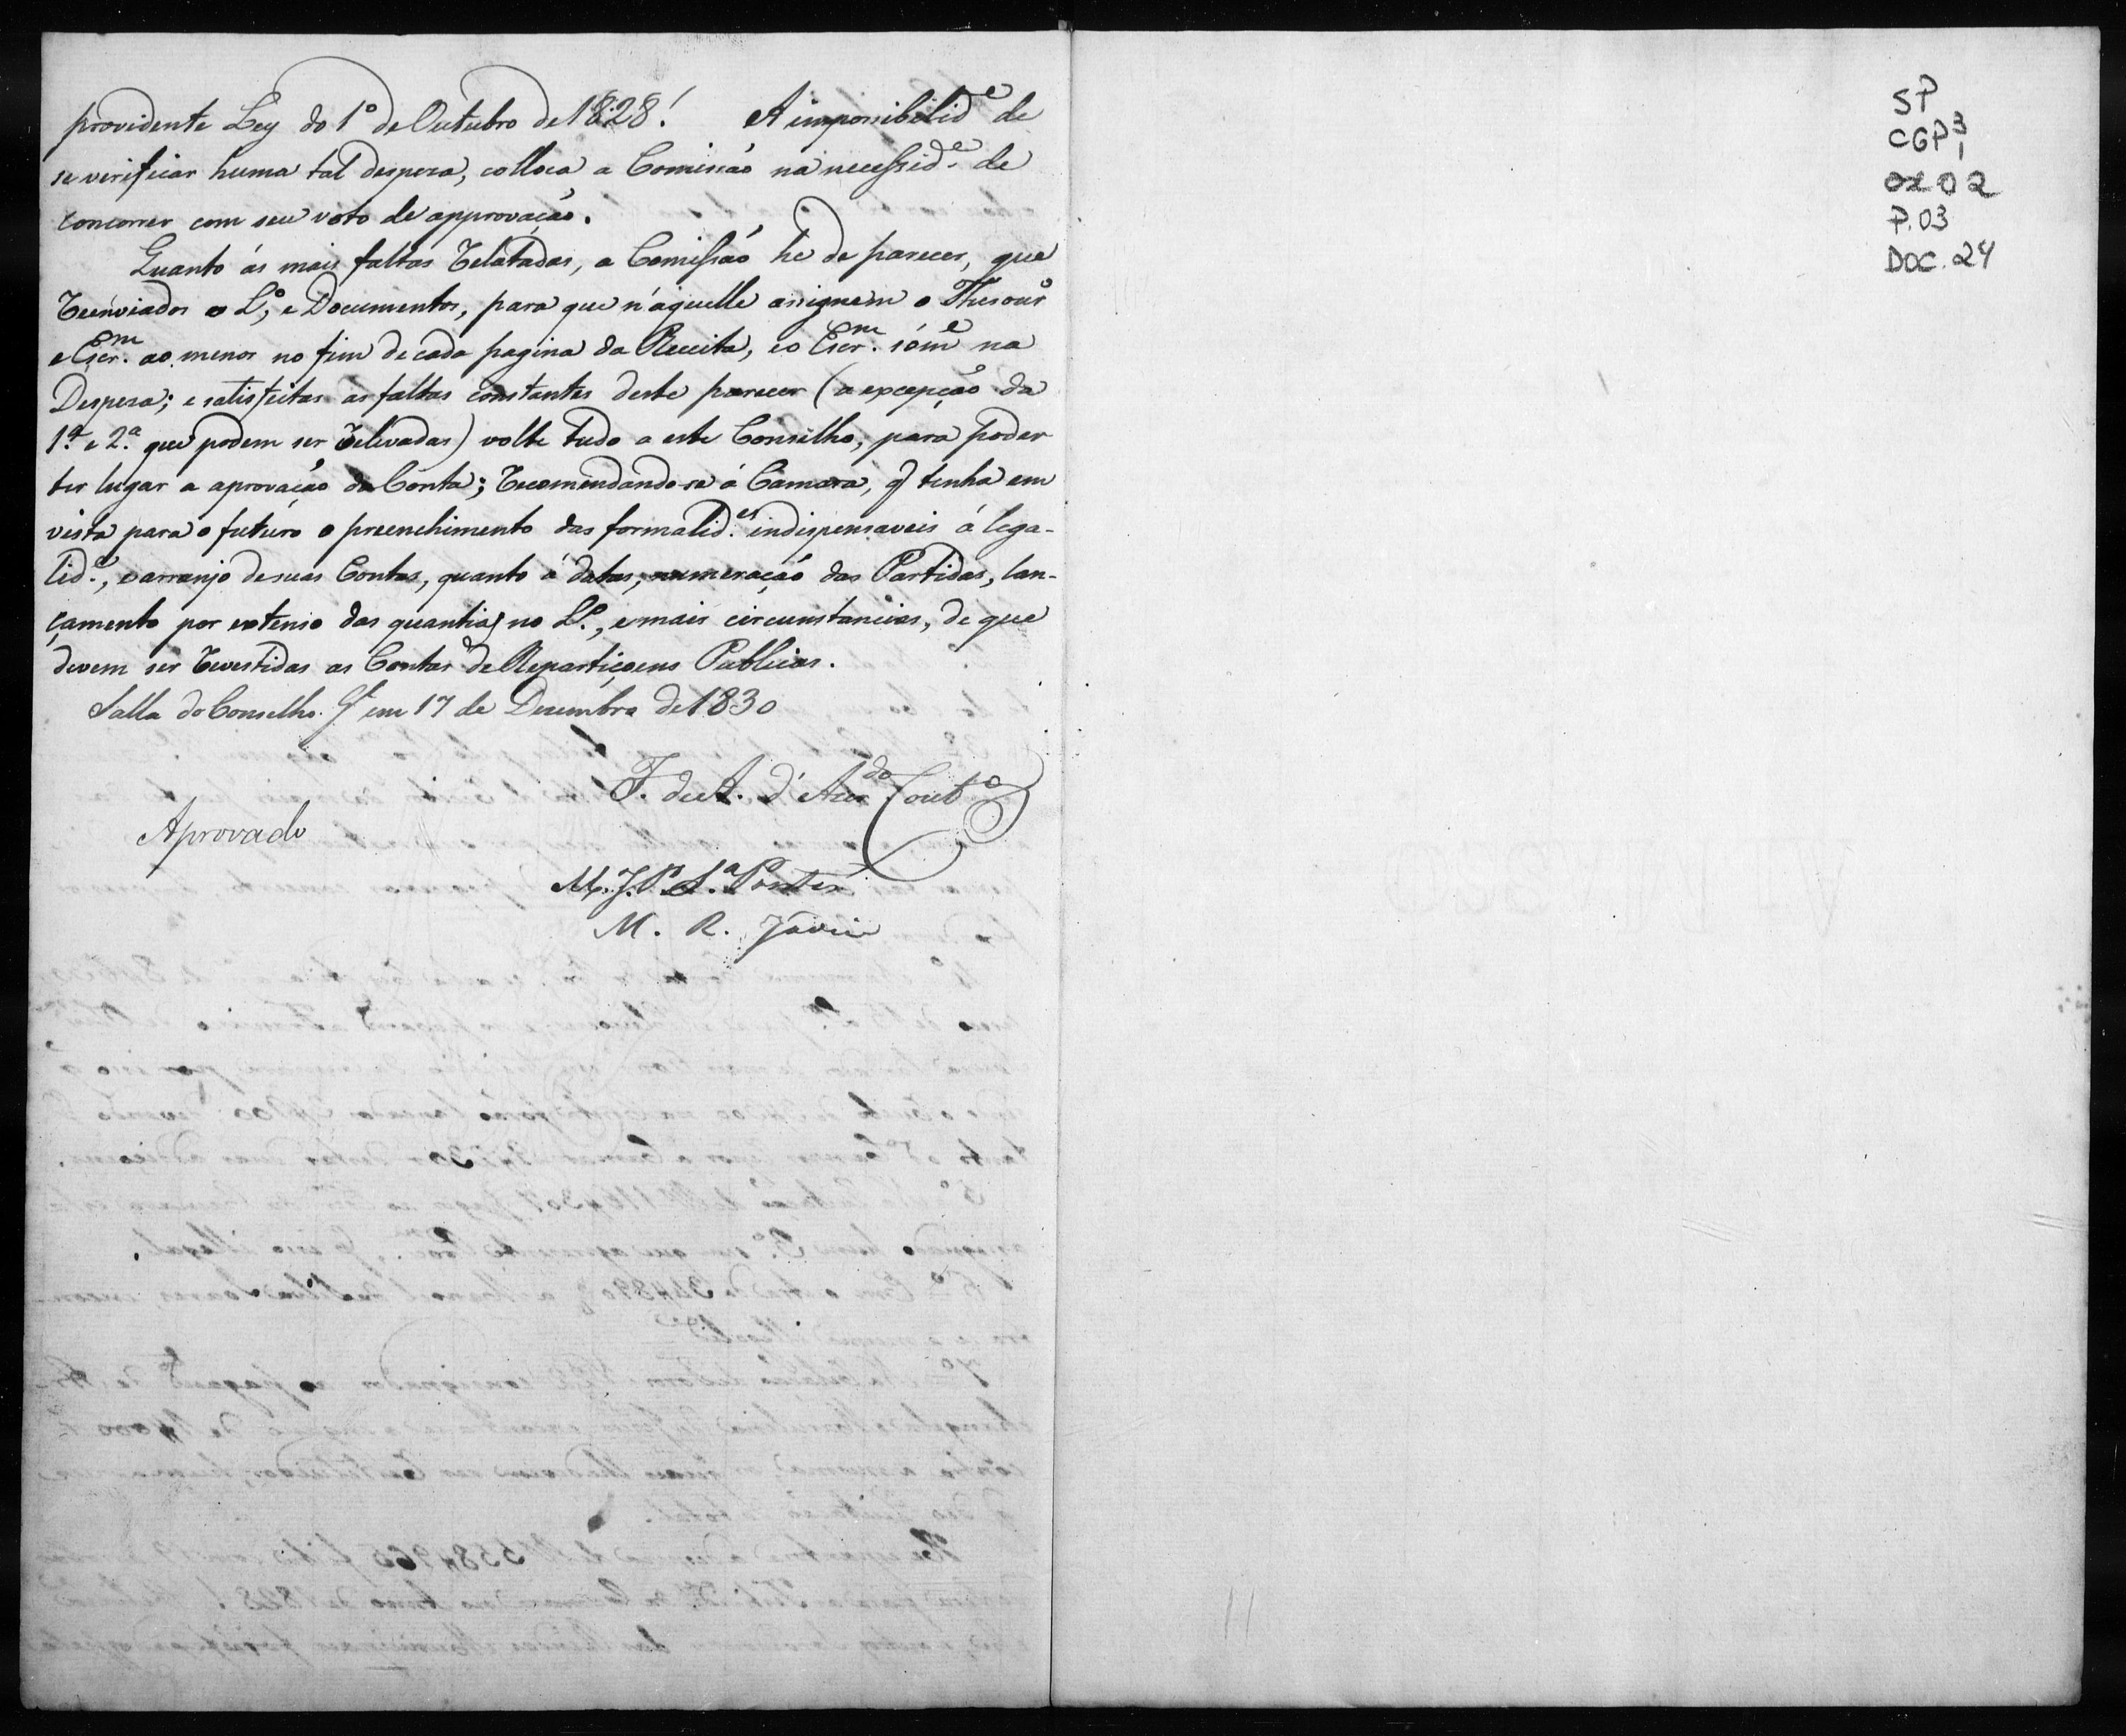 providente Ley do 1º de Outubro de 1828! A impossibilid.e de
se verificar huma tal despeza, colloca a Comissão na necessid.e de
concorrer com seu voto de approvação.
Quanto ás mais faltas relatadas, a Comissão he de parecer, que
reenviados o L.º, e Documentos, para que n'aquelle assignem o Thesour.º
e Escr.m ao menos no fim de cada pagina da Receita, e o Escr.m sóm.e na
Despeza; e satisfeitas as faltas constantes deste parecer (a excepção da
1.ª e 2.ª que podem ser relevadas) volte tudo a este Conselho, para poder
ter lugar a aprovação da Conta; recomendando-se á Camara, q tenha em
vista para o futuro o preenchimento das formalid.es indispensaveis á lega-
lid.e, e arranjo de suas Contas, quanto á datas, numeração das Partidas, lan-
çamento por extenso das quantias no L.º, e mais circunstancias, de que
devem ser revestidas as Contas de Repartiçoens Publicas.
Salla do Conselho G.l em 17 de Dezembro de 1830
F. de A. d'Azer.do Cout.º
Aprovado
M. J. P.ª S.ª Pontes
M. R. Jardim
SP
CGP 3
1
02
P.03
DOC. 24